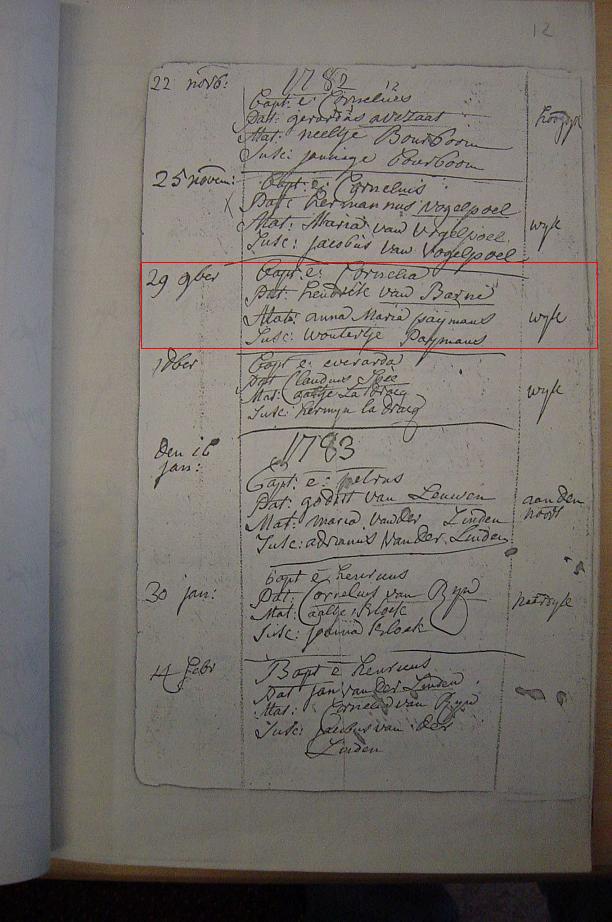 12
1782
22 novb:
Bapt: e: Cornelius
Pat: gerardus averzaat
Mat: neeltje Bourboom
Susc: jannige bourboom
25 novem:
Bapt: e: Cornelius
Pat: hermannus vogelpoel
Mat: Maria van Vogelpoel
wyk
Susc: jacobus van Vogelpoel
29 9ber
Bapt: e: Cornelia
Pat: hendrik van Barne
Mat: anna Maria paymans
wyk
Susc: woutertje Paymans
1 ber
Bapt e: everarda
Pat Claudius
Mat: la
wyk
Susc: hermyn la
1783
Den 16
jan:
Bapt: e: petrus
Pat: godert van Leuwen
aan den
Mat: maria vander Linden
Susc: adrianus vander Linden
30 jan:
bapt e henricus
Pat: Cornelius van Ryn
Mat: aaltje Bloek
Susc: joanna Bloek
14 febr
Bapt e henricus
Pat jan van der Linden
Mat: Cornelia van Ryn
Susc: jacobus van der
Linden